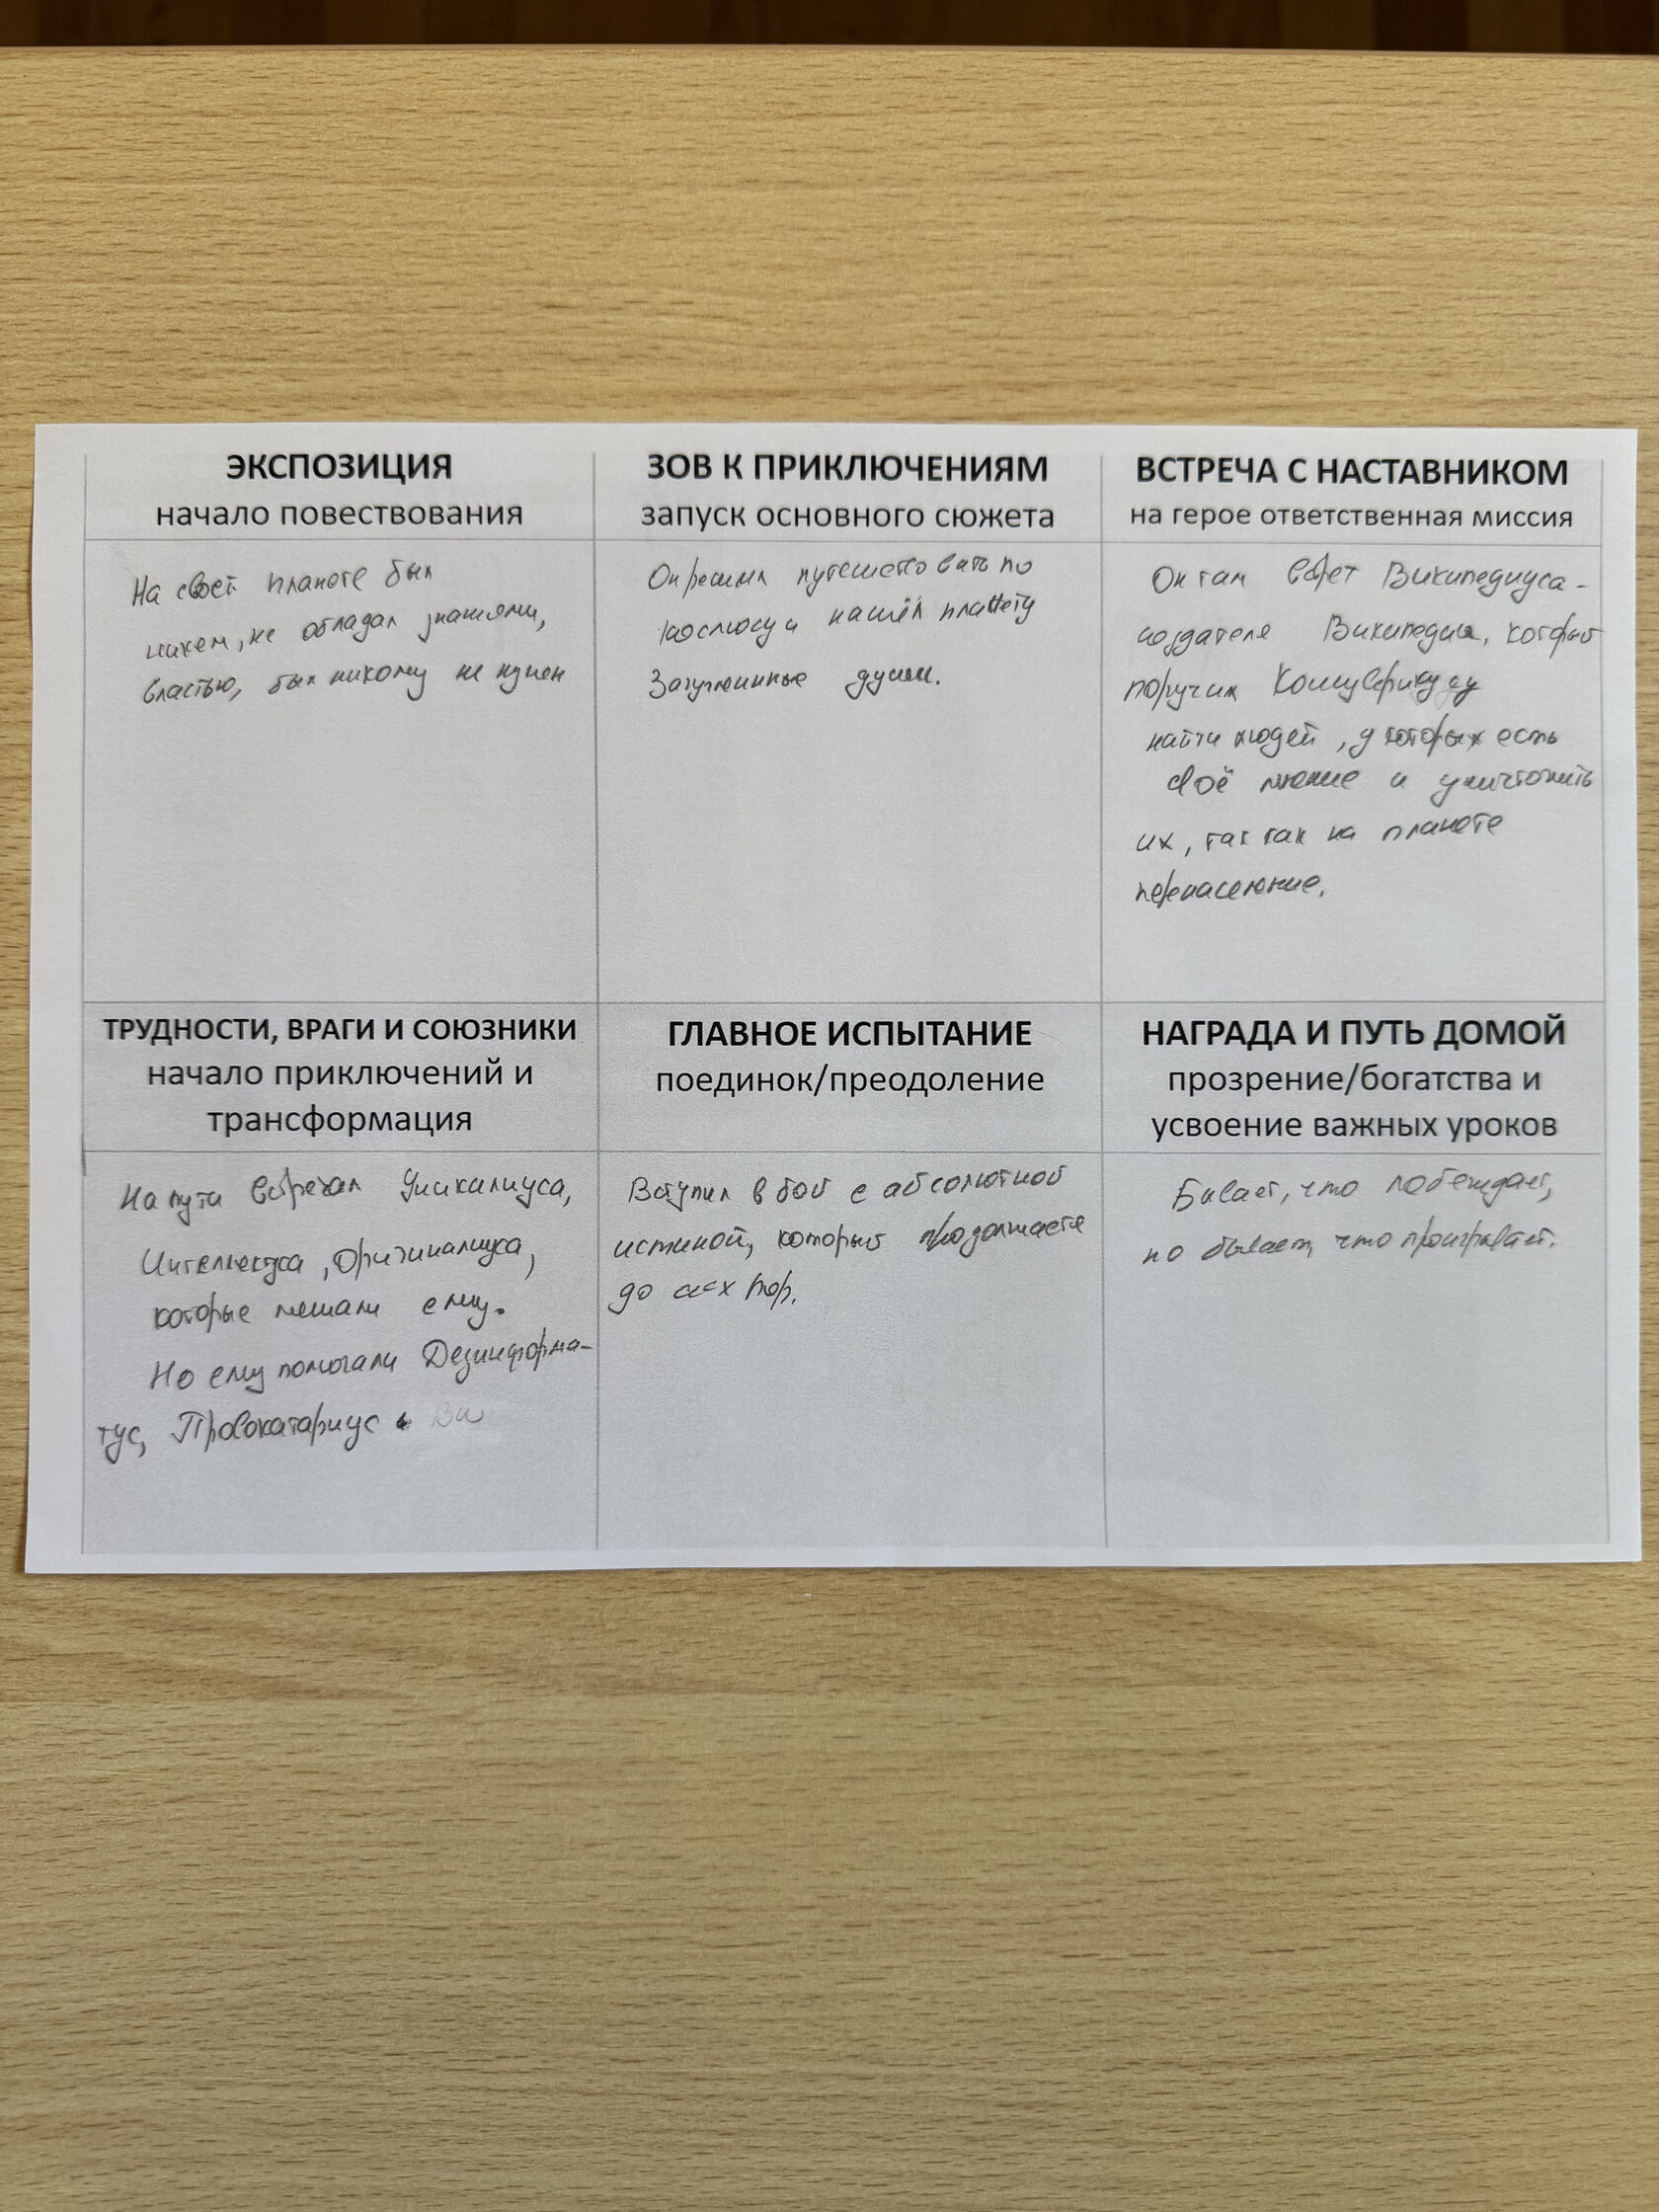 ЭКСПОЗИЦИЯ
начало повествования
На своей планете был
никем, не обладал знаниями,
властью, был никому не нужен
ЗОВ К ПРИКЛЮЧЕНИЯМ
запуск основного сюжета
Он решил путешествовать по
космосу и нашёл планету
Загубленные души.
ВСТРЕЧА С НАСТАВНИКОМ
на герое ответственная миссия
Он там Википедиуса -
создателя Википедии, который
поручил
найти людей, у которых есть
своё мнение и уничтожить
их, так как на планете
перенаселение.
ТРУДНОСТИ, ВРАГИ И СОЮЗНИКИ
начало приключений и
трансформация
На пути встречал Уникалиуса,
Интеллектуса, Оригиналиуса,
которые мешали ему.
Но ему помогали Дезинформа-
тус, Провокатариус
ГЛАВНОЕ ИСПЫТАНИЕ
поединок/преодоление
Вступил в бой с абсолютной
истиной, который продолжается
до сих пор.
НАГРАДА И ПУТЬ ДОМОЙ
прозрение/богатства и
усвоение важных уроков
Бывает, что побеждает,
но бывает, что проигрывает.